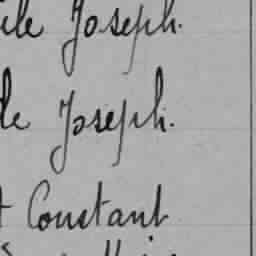 ile Joseph.
le Joseph.
t Constant